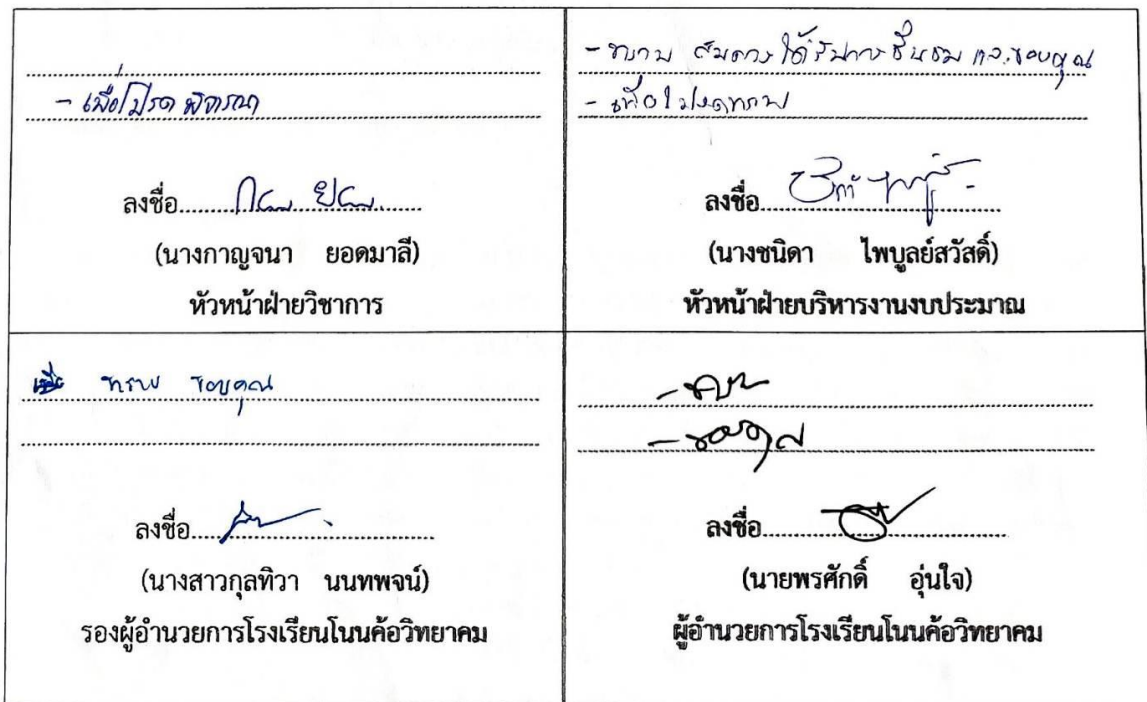 - เพื่อโปรดพิจารณา
ลงชื่อ
(นางกาญจนา ยอดมาลี)
หัวหน้าฝ่ายวิชาการ
- ทราบ สมควรได้รับการชื่นชม และขอบคุณ
- เพื่อโปรดทราบ
ลงชื่อ
(นางชนิดา ไพบูลย์สวัสดิ์)
หัวหน้าฝ่ายบริหารงานงบประมาณ
ทราบ ขอบคุณ
ลงชื่อ
(นางสาวกุลทิวา นนทพจน์)
รองผู้อำนวยการโรงเรียนโนนค้อวิทยาคม
- ทราบ
- ขอบคุณ
ลงชื่อ
(นายพรศักดิ์ อุ่นใจ)
ผู้อำนวยการโรงเรียนโนนค้อวิทยาคม